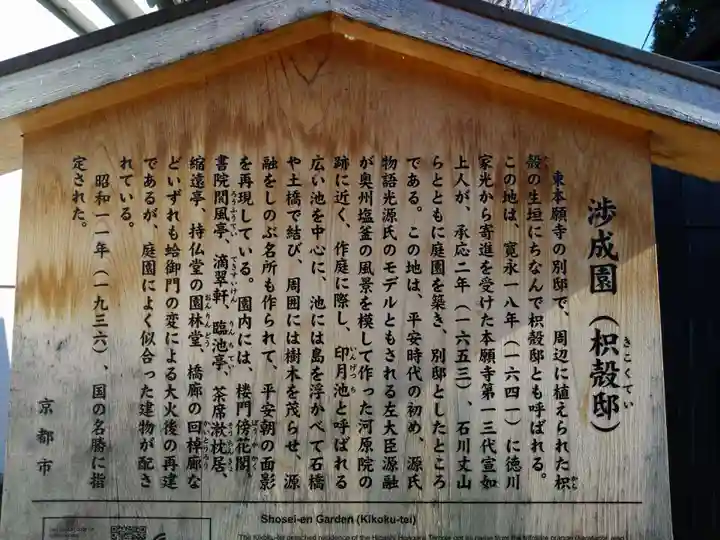 渉成園（枳殻邸）
きこくてい
東本願寺の別邸で、周辺に植えられた枳
殻の生垣にちなんで枳殻邸とも呼ばれる。
この地は、寛永一八年（一六四一）に徳川
家光から寄進を受けた本願寺第一三代宣如
上人が、承応二年（一六五三）、石川丈山
らとともに庭園を築き、別邸としたところ
である。この地は、平安時代の初め、源氏
物語光源氏のモデルともされる左大臣源融
が奥州塩釜の風景を模して作った河原院の
跡に近く、作庭に際し、印月池と呼ばれる
いんげつち
広い池を中心に、池には島を浮かべて石橋
や土橋で結び、周囲には樹木を茂らせ、源
融をしのぶ名所も作られて、平安朝の面影
を再現している。園内には、楼門傍花閣、
ぼうかかく
書院閬風亭、滴翠軒、臨池亭、茶席漱枕居、
ろうふうてい てきすいけん りんちてい そうちんきょ
縮遠亭、持仏堂の園林堂、橋廊の回棹廊な
おんりんどう かいとうろう
どいずれも蛤御門の変による大火後の再建
であるが、庭園によく似合った建物が配さ
れている。
昭和一一年（一九三六）、国の名勝に指
定された。
京都市
Shosei-en Garden (Kikoku-tei)